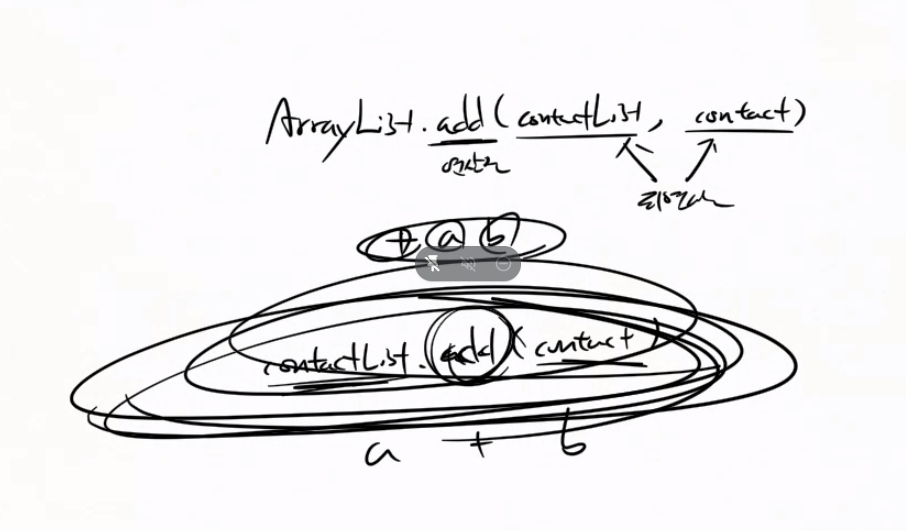 ArrayList.add(contactList, contact)
연산자
피연산자
+ a b
contactList.add(contact)
a + b